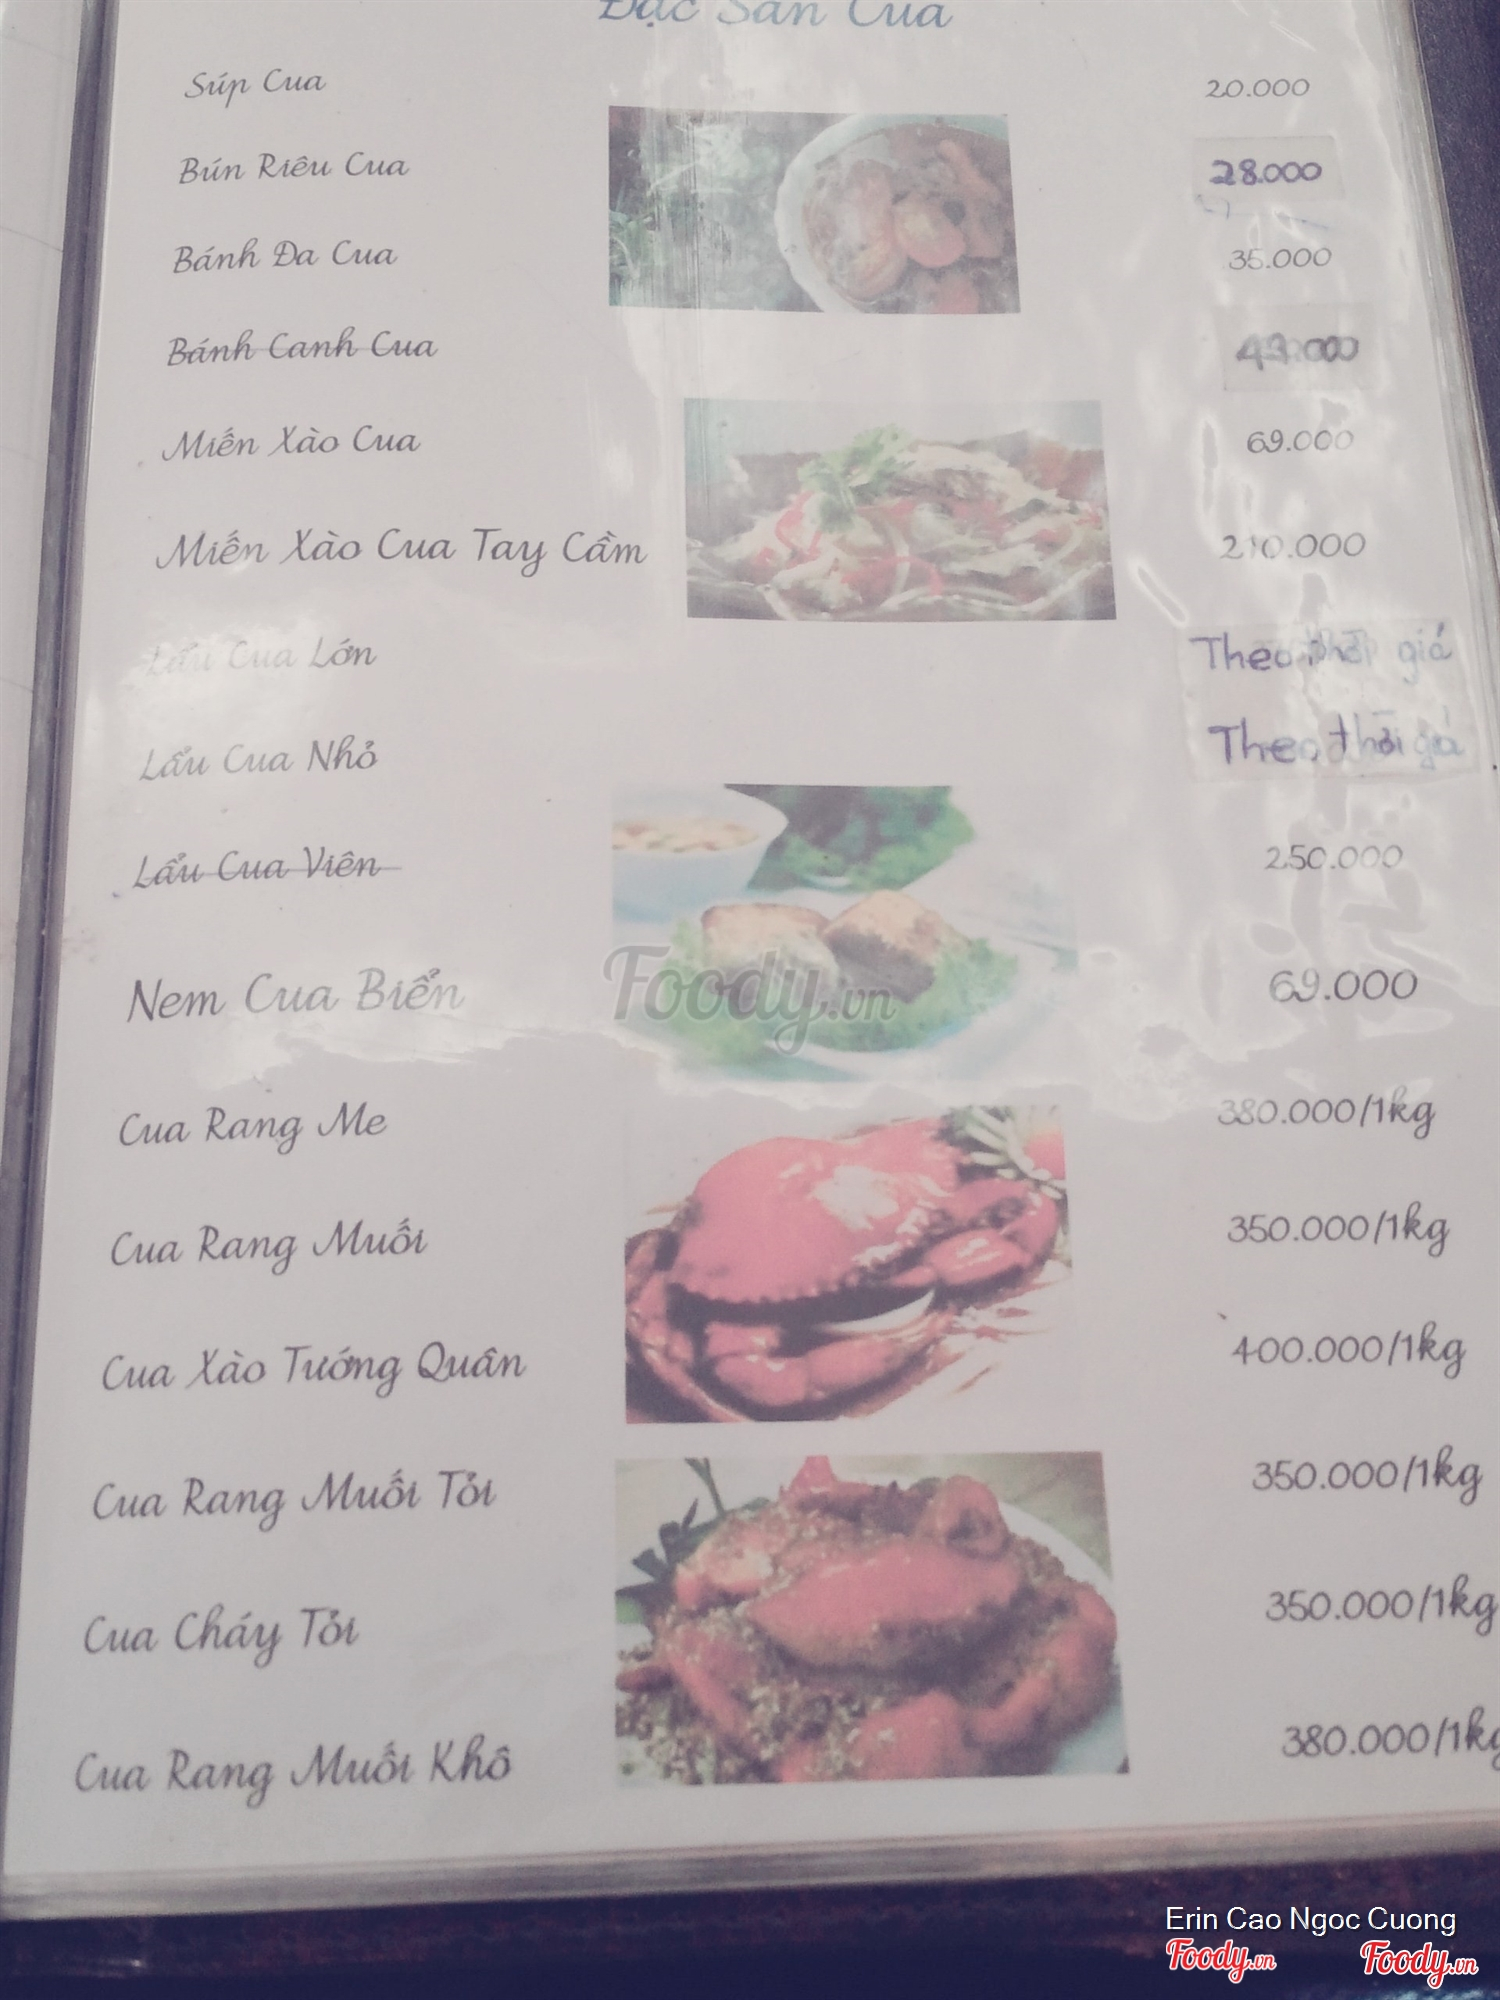 Đặc Sản Cua
Súp Cua 20.000
Bún Riêu Cua 28.000
Bánh Đa Cua 35.000
Bánh Canh Cua
Miến Xào Cua 69.000
Miến Xào Cua Tay Cầm 210.000
Lẩu Cua Lớn Theo thời giá
Lẩu Cua Nhỏ Theo thời giá
Lẩu Cua Viên 250.000
Nem Cua Biển 69.000
Foody.vn
Cua Rang Me 380.000/1kg
Cua Rang Muối 350.000/1kg
Cua Xào Tướng Quân 400.000/1kg
Cua Rang Muối Tỏi 350.000/1kg
Cua Cháy Tỏi 350.000/1kg
Cua Rang Muối Khô 380.000/1kg
Erin Cao Ngoc Cuong
Foody.vn Foody.vn